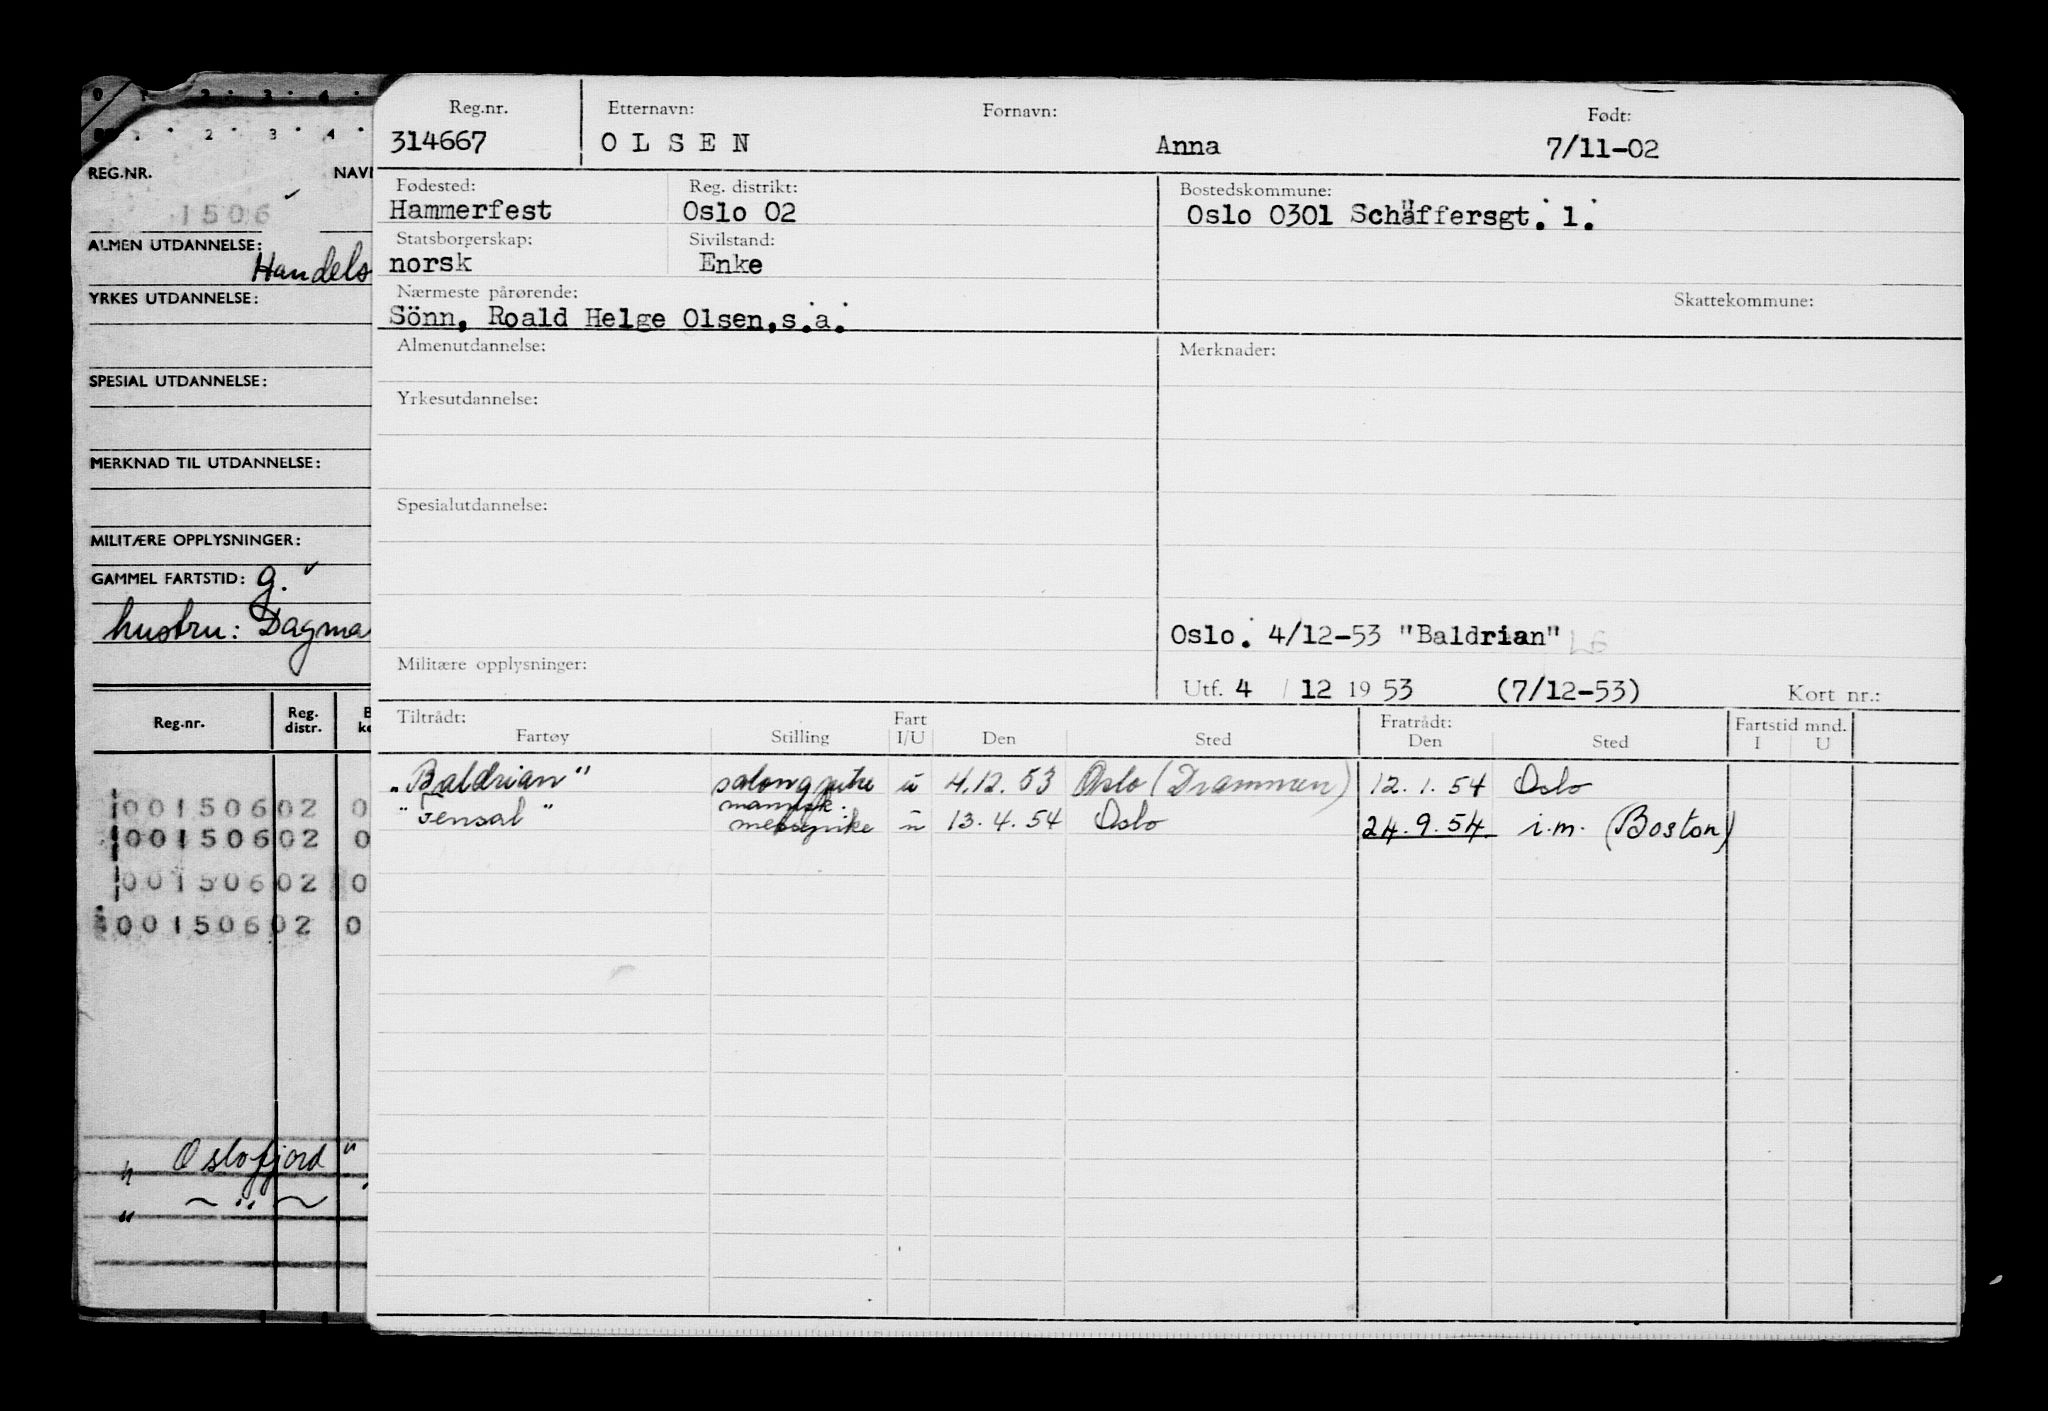 0 1 2 3 4
1 2 3 4
REG.NR. NAV
1506
ALMEN UTDANNELSE:
Handels
YRKES UTDANNELSE:
SPESIAL UTDANNELSE:
MERKNAD TIL UTDANNELSE:
MILITÆRE OPPLYSNINGER:
GAMMEL FARTSTID: g.
hustru: Dagma
Reg.nr. Reg. distr.
00150602 0
00150602 0
00150602 0
00150602 0
" Oslofjord "
" ~ " ~
Reg.nr. Etternavn: Fornavn: Født:
314667 OLSEN Anna 7/11-02
Fødested: Reg. distrikt: Bostedskommune:
Hammerfest Oslo 02 Oslo 0301 Schäffersgt. 1.
Statsborgerskap: Sivilstand:
norsk Enke
Nærmeste pårørende: Skattekommune:
Sönn, Roald Helge Olsen,s.a.
Almenutdannelse: Merknader:
Yrkesutdannelse:
Spesialutdannelse:
Oslo. 4/12-53 "Baldrian"
Militære opplysninger:
Utf. 4 / 12 19 53 (7/12-53) Kort nr.:
Tiltrådt: Fart Fratrådt: Fartstid mnd.
Fartøy Stilling I/U Den Sted Den Sted I U
"Baldrian" salongpike u 4.12.53 Oslo (Drammen) 12.1.54 Oslo
messepike u 13.4.54 Oslo 24.9.54 i.m. (Boston)